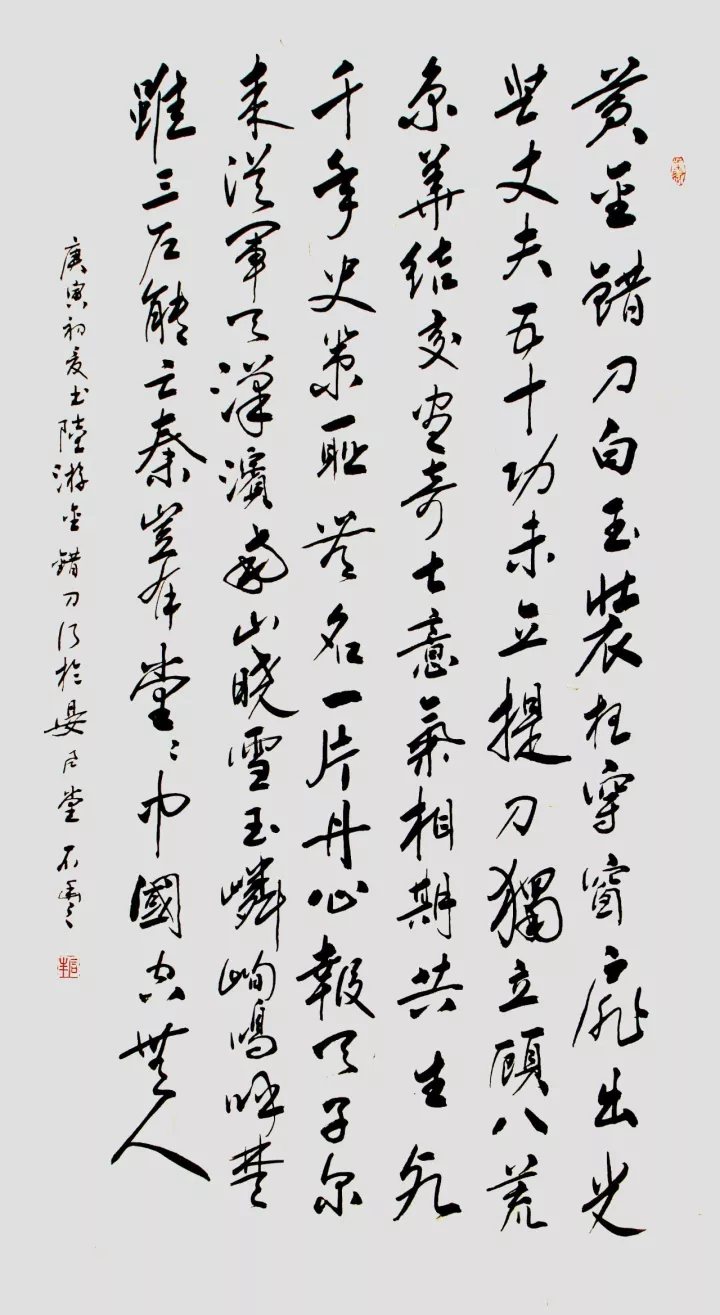 黃金錯刀白玉裝夜穿窗扉出光
芒丈夫五十功未立提刀獨立顧八荒
京華結交盡奇士意氣相期共生死
千年史策恥無名一片丹心報天子尔
来從軍天漢濱南山曉雪玉嶙峋嗚呼楚
雖三户能亡秦豈有堂〻中國空無人
庚寅初夏書陸游金錯刀行於晏居堂